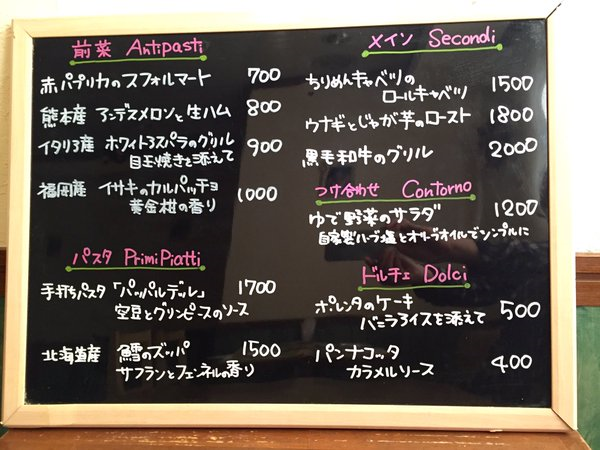 前菜 Antipasti
赤パプリカのスフォルマート 700
熊本産 アンデスメロンと生ハム 800
イタリア産 ホワイトアスパラのグリル
目玉焼きを添えて 900
福岡産 イサキのカルパッチョ
黄金柑の香り 1000
パスタ Primi Piatti
手打ちパスタ「パッパルデッレ」 1700
空豆とグリンピースのソース
北海道産 鱈のズッパ 1500
サフランとフェンネルの香り
メイン Secondi
ちりめんキャベツの
ロールキャベツ 1500
ウナギとじゃが芋のロースト 1800
黒毛和牛のグリル 2000
つけ合わせ Contorno
ゆで野菜のサラダ 1200
自家製ハーブ塩とオリーブオイルでシンプルに
ドルチェ Dolci
ポレンタのケーキ
バニラアイスを添えて 500
パンナコッタ
カラメルソース 400